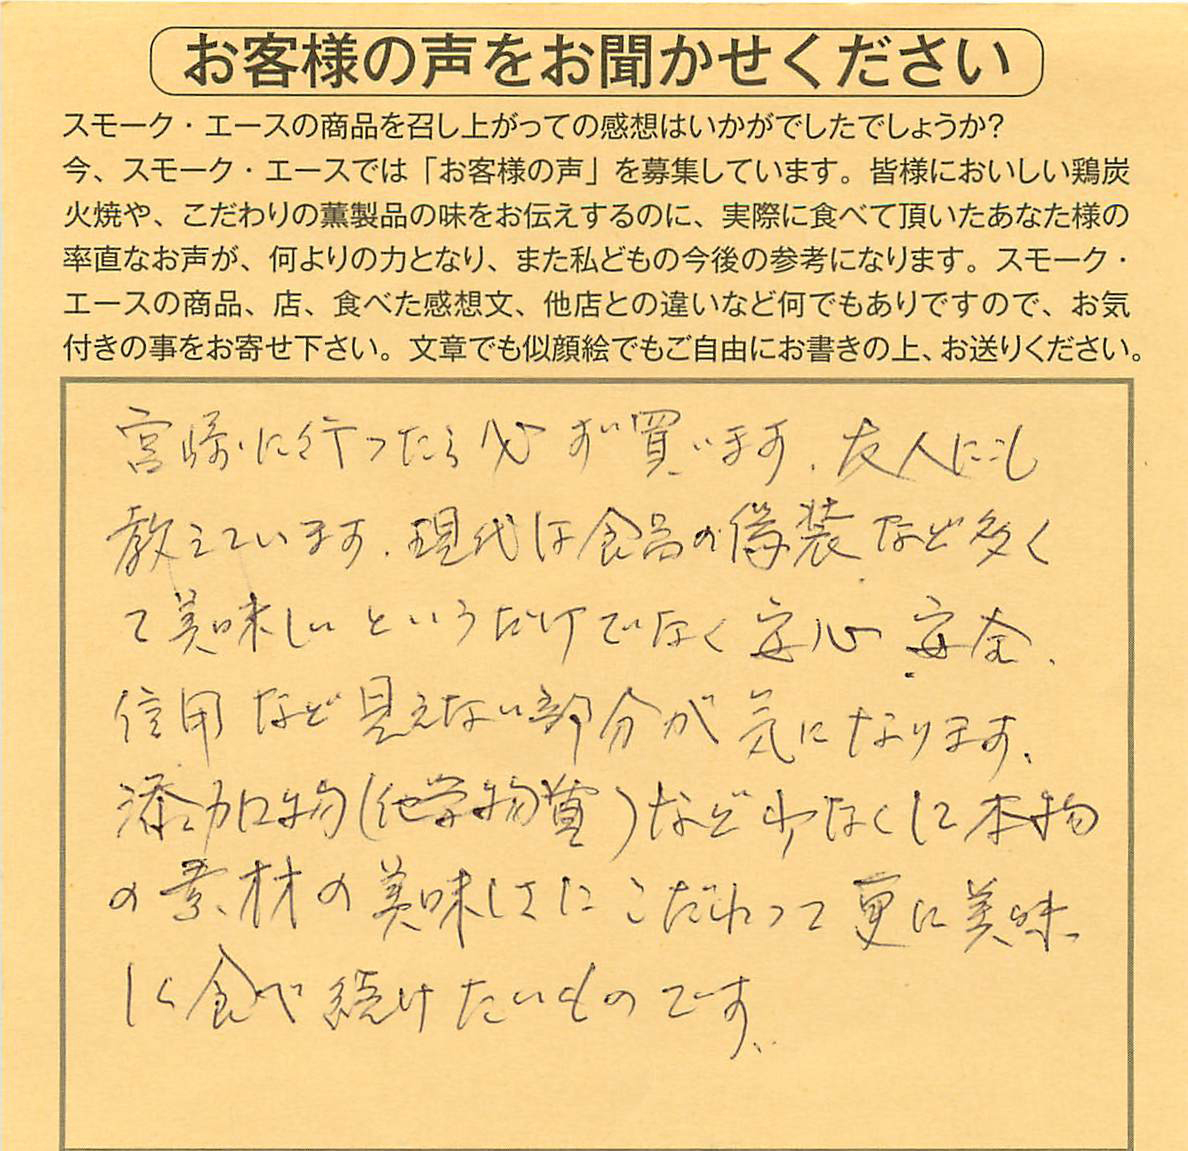 お客様の声をお聞かせください
スモーク・エースの商品を召し上がっての感想はいかがでしたでしょうか?
今、スモーク・エースでは「お客様の声」を募集しています。皆様においしい鶏炭
火焼や、こだわりの薫製品の味をお伝えするのに、実際に食べて頂いたあなた様の
率直なお声が、何よりの力となり、また私どもの今後の参考になります。スモーク・
エースの商品、店、食べた感想文、他店との違いなど何でもありですので、お気
付きの事をお寄せ下さい。文章でも似顔絵でもご自由にお書きの上、お送りください。
宮崎に行ったら必ず買います。友人にも
教えています。現代は食品の偽装など多く
て美味しいというだけでなく安心 安全、
信用など見えない部分が気になります。
添加物(化学物質)など少なくして本物
の素材の美味しさにこだわって更に美味
しく食べ続けたいものです。